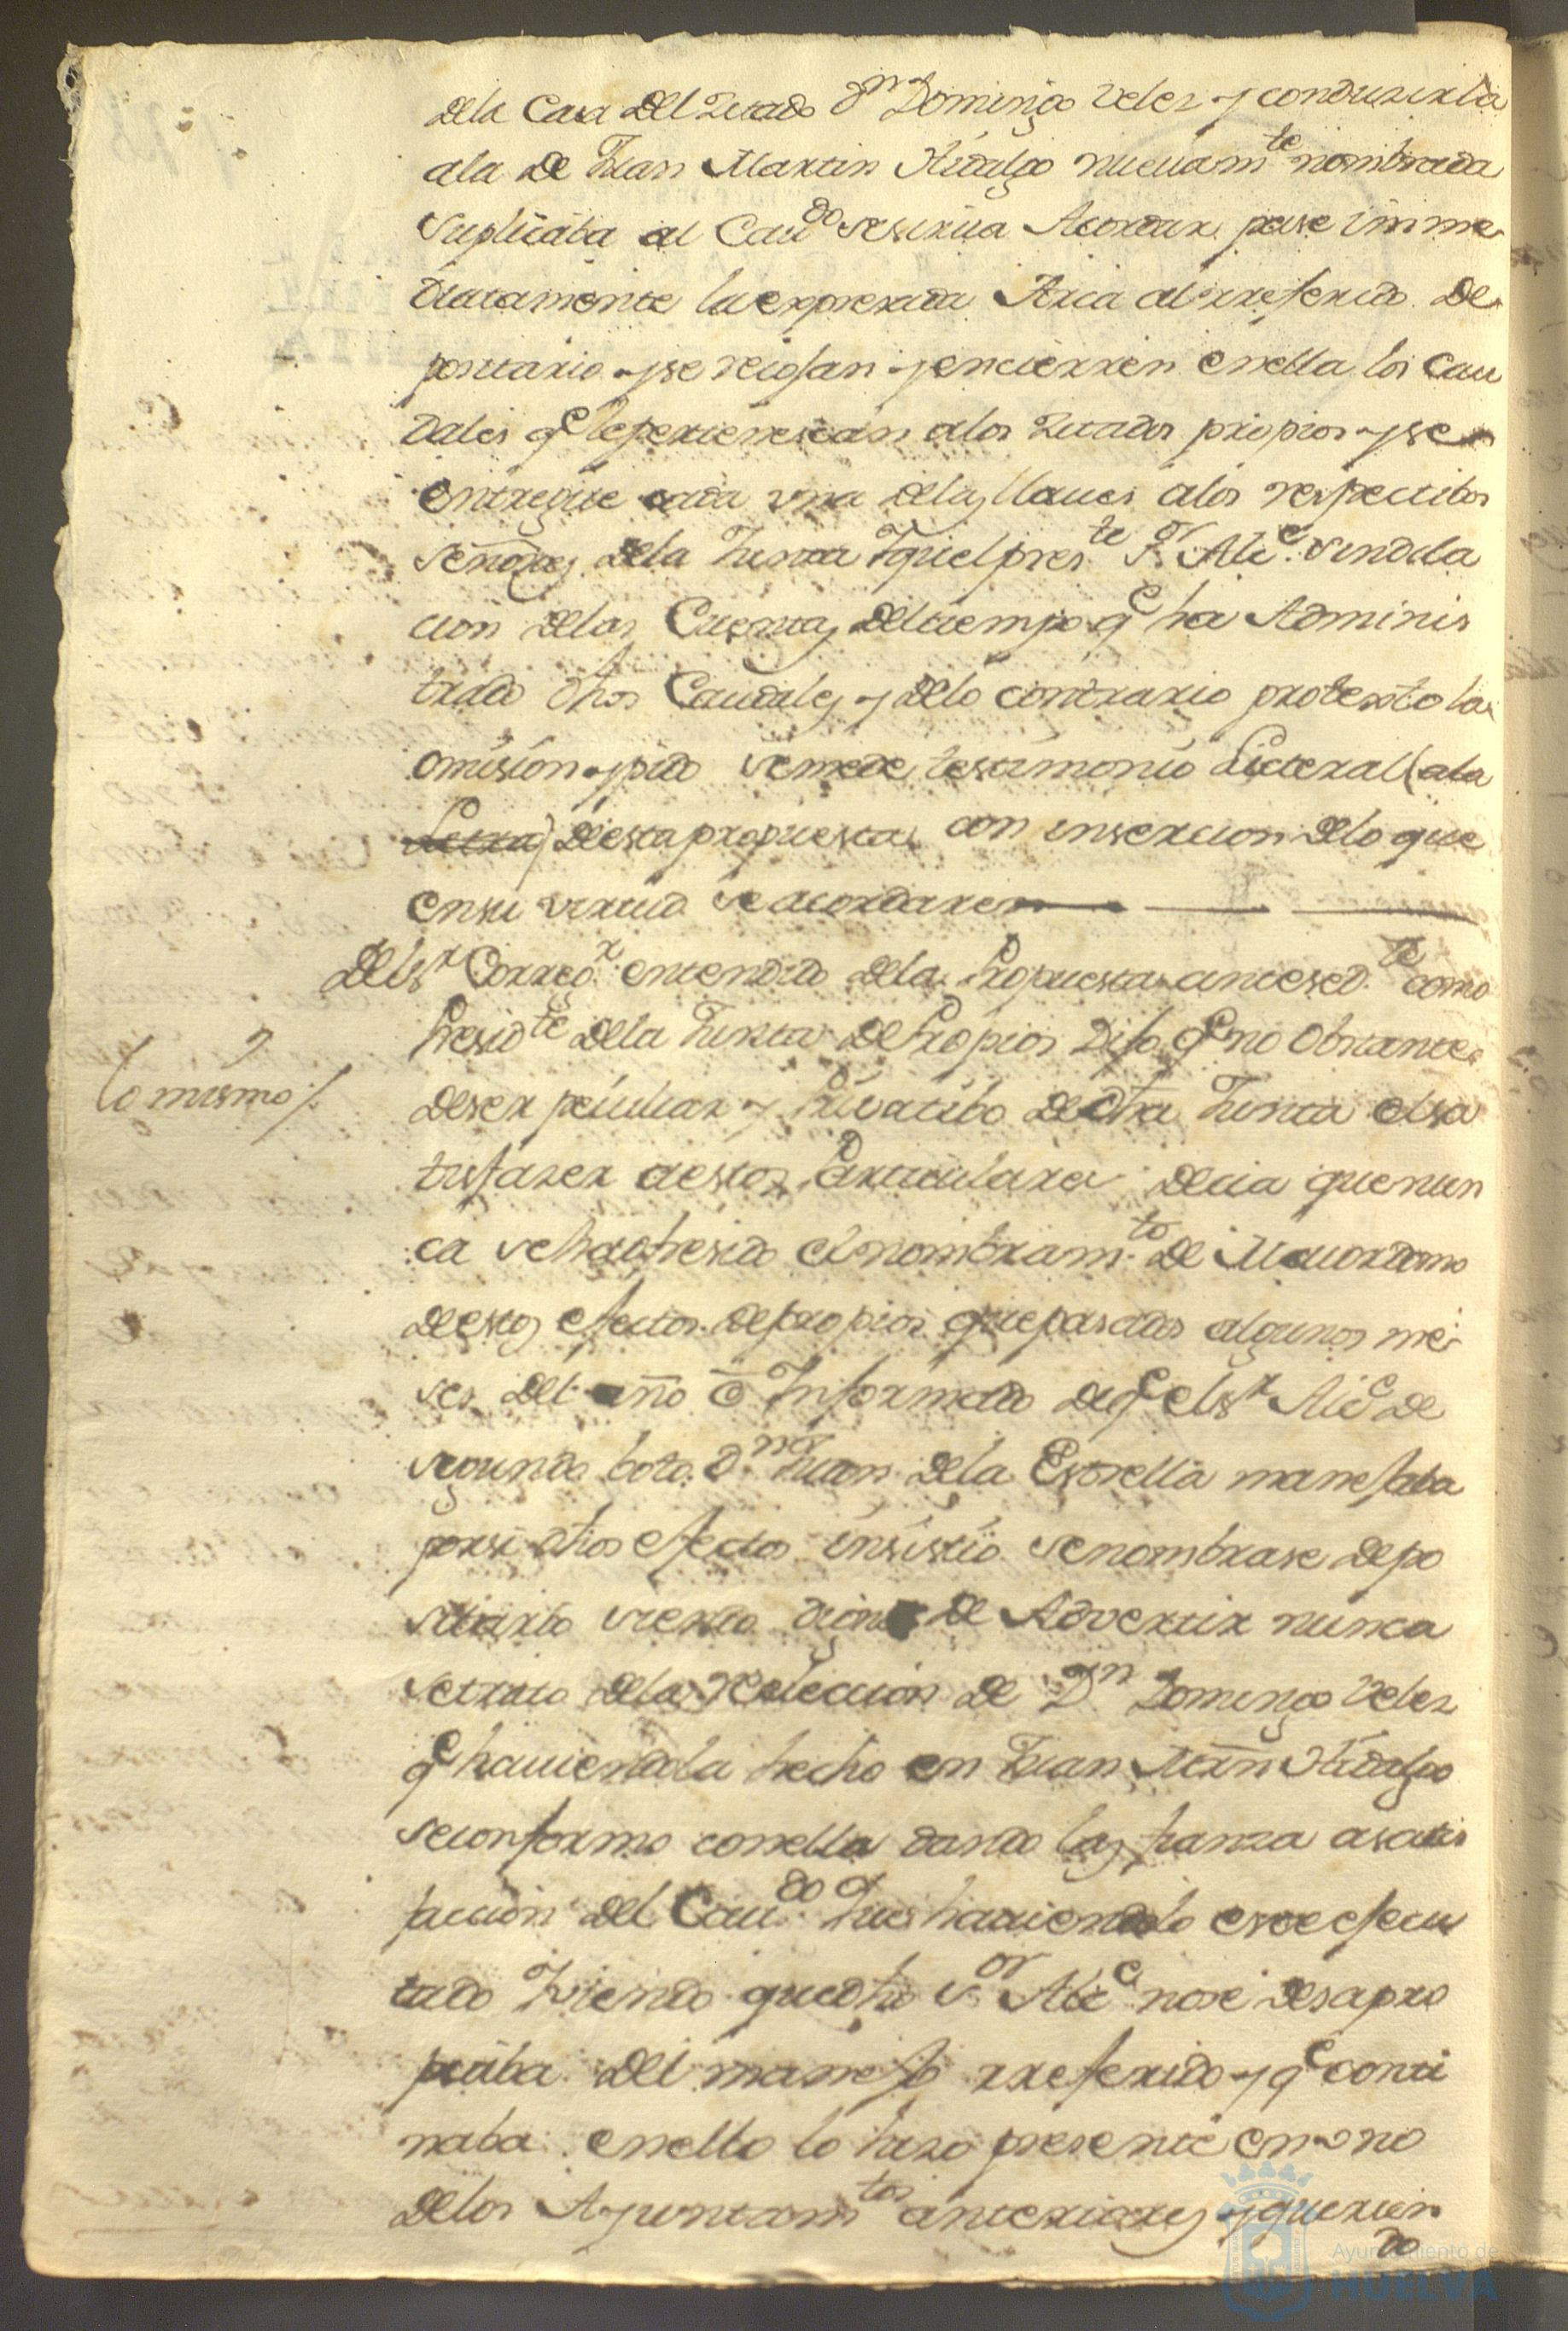 dela Casa del Zitado Dn Domingo Velez y conduzirla
ala de Juan Martin Hidalgo nuevamte nombrada
suplicaba al Cavdo se sirva Acordar pase imme
diatamente la expresada Arca al rreferido De
positario y se recojan y encierren en ella los Cau
dales qe le pertenescan alos Zitados propios y se
entregue cada una delas llaues alos respectibos
señores dela Junta Y qe el preste Sor Alce
cion delas Cuentas del tiempo qe ha Adminis
trado dhos Caudales y delo contrario protexto la
omision y pido se me de testimonio Literal (ala
Letra) de esta propuesta con insercion delo que
en su virtud se acordare
Del Sr Corregr entendido dela Propuesta antesedte como
Presidte dela Junta de Propios Dijo qe no Obstante
de ser peculiar y Privatibo de dha Junta el sa
tisfazer a estos Particulares decia que nun
ca se ha ofresido el nombramto de Maiordomo
de estos efectos de propios que pasados algunos me
ses del año e Informado de qe el Sr Alce de
segundo boto Dn Juan dela Estrella manejaba
por si dhos efectos insistio se nombrase depo
sitario siendo digno de Advertir nunca
se trato dela reeleccion de Dn Domingo Velez
qe haviendola hecho en Juan Mrn Hidalgo
se conformo con ella dando las fianza a satis
faccion del Cavdo Que haviendolo este efecu
tado Y viendo que dho Sor Alce no se desapro
piaba del manejo rreferido y qe conti
naba en ello lo hizo presente en uno
delos Ayuntamtos anteriores y querien
do
lo mismo
Ayuntamiento de
HUELVA